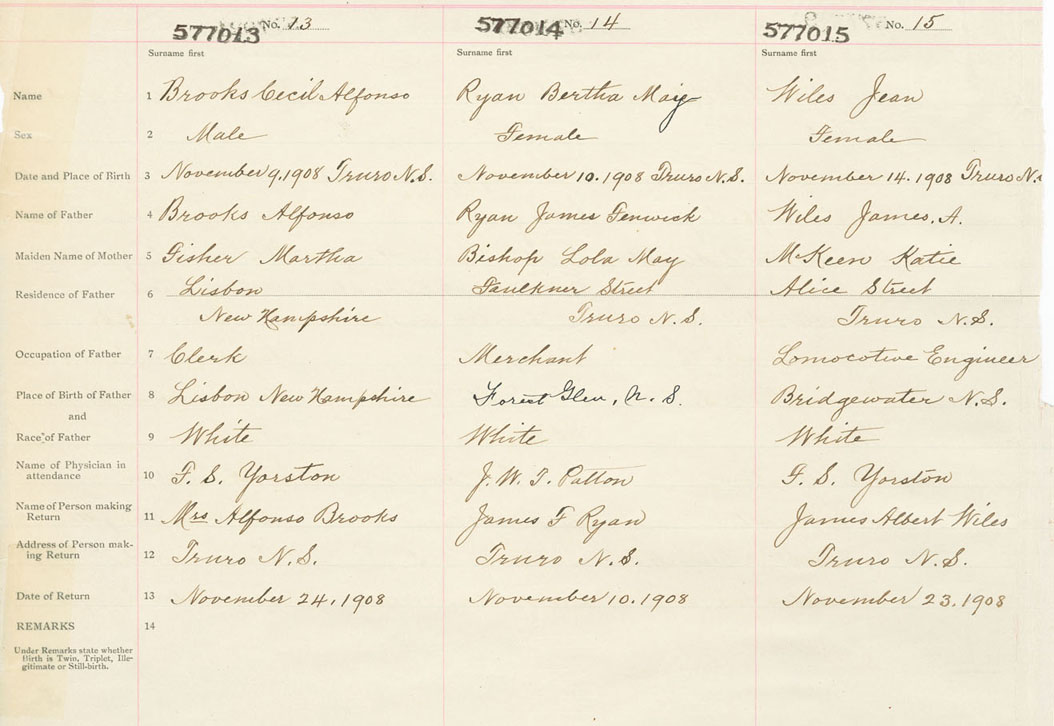 577013 No. 13 577014 No. 14 577015 No. 15
Surname first Surname first Surname first
Name 1 Brooks Cecil Alfonso Ryan Bertha May Wiles Jean
Sex 2 Male Female Female
Date and Place of Birth 3 November 9, 1908 Truro N.S. November 10. 1908 Truro N.S. November 14. 1908 Truro N.
Name of Father 4 Brooks Alfonso Ryan James Fenwick Wiles James. A.
Maiden Name of Mother 5 Fisher Martha Bishop Lola May McKeen Katie
Residence of Father 6 Lisbon Faulkner Street Alice Street
New Hampshire Truro N.S. Truro N.S.
Occupation of Father 7 Clerk Merchant Lomocotive Engineer
Place of Birth of Father 8 Lisbon New Hampshire Forest Glen, N. S. Bridgewater N.S.
and
Race of Father 9 White White White
Name of Physician in
attendance 10 F. S. Yorston J. W. T. Patton F. S. Yorston
Name of Person making
Return 11 Mrs Alfonso Brooks James F Ryan James Albert Wiles
Address of Person mak-
ing Return 12 Truro N.S. Truro N.S. Truro N.S.
Date of Return 13 November 24, 1908 November 10. 1908 November 23. 1908
REMARKS 14
Under Remarks state whether
Birth is Twin, Triplet, Ille-
gitimate or Still-birth.